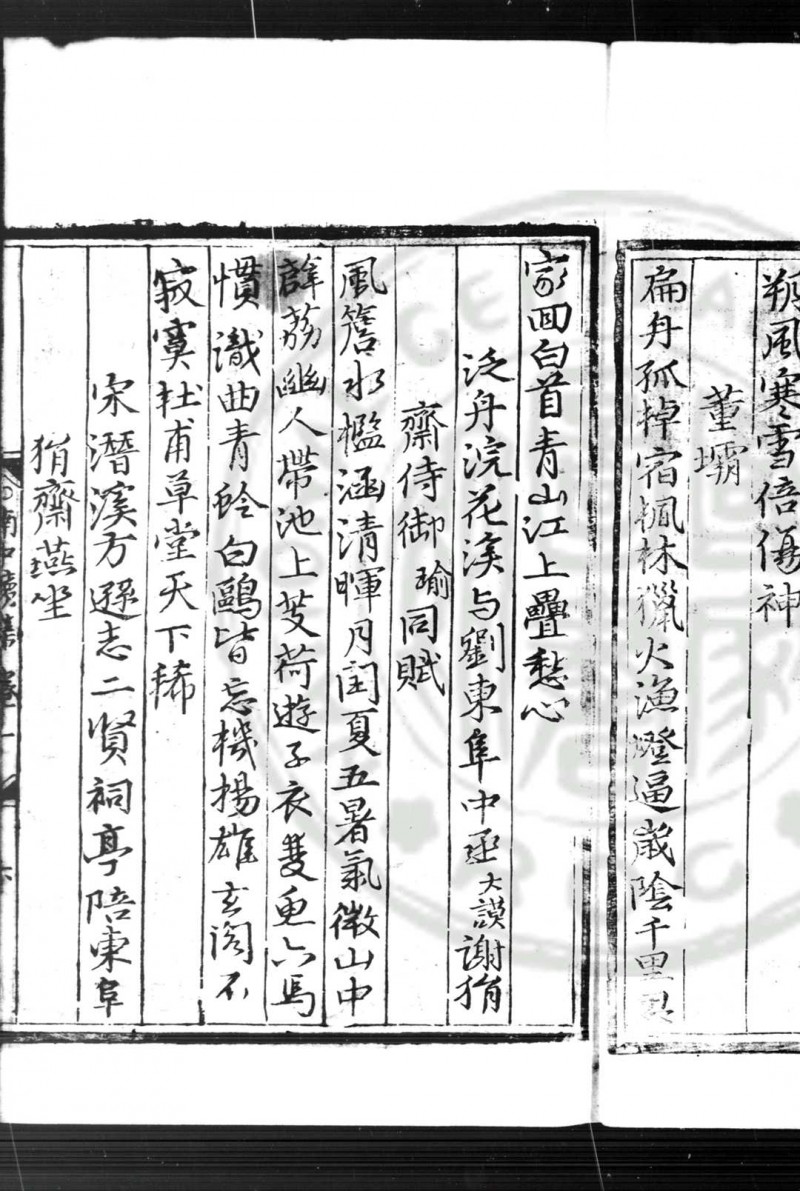 朔風寒雪倍傷神
董壩
扁舟孤掉宿楓林獵火漁燈逼歲陰千里
家回白首青山江上疊愁心
泛舟浣花溪与劉東阜中丞大謨謝狷
齋侍御瑜同賦
風簷水檻涵清暉月閏夏五暑氣微山中
薜荔幽人帶池上芰荷遊子衣雙魚六馬
慣識曲青蛉白鷗皆忘機揚雄玄閣不
寂寞杜甫草堂天下稀
宋潛溪方遜志二賢祠亭陪東阜
狷齋燕坐
南中續集
六